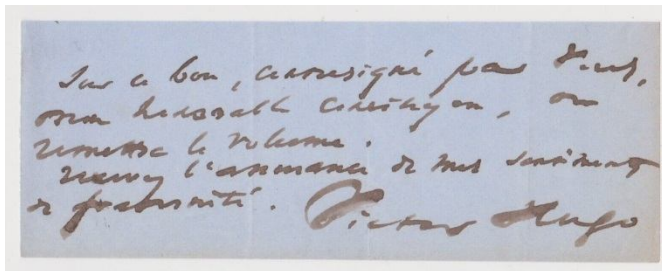 Sur ce bon, contresigné par vous,
mon honorable concitoyen, on
remettra le volume.
Recevez l'assurance de mes sentiments
de fraternité. Victor Hugo